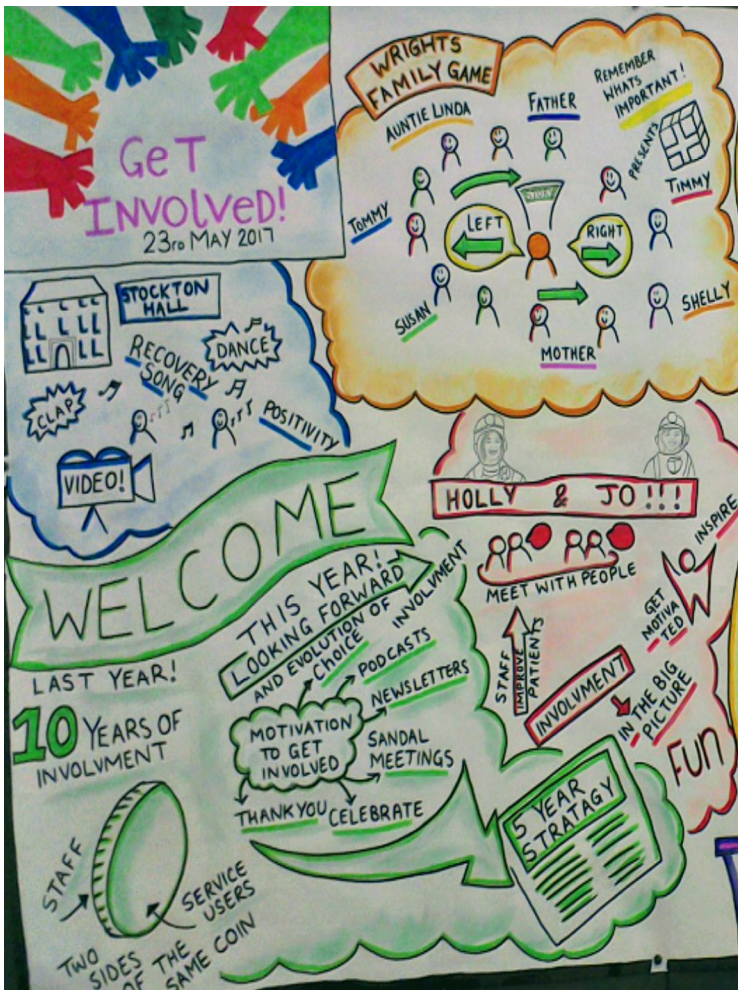 GeT
INVOLVeD!
23RD MAY 2017
WRIGHTS
FAMILY GAME
AUNTIE LINDA
FATHER
REMEMBER
WHATS
IMPORTANT!
PRESENTS
TIMMY
TOMMY
LEFT
RIGHT
SUSAN
SHELLY
MOTHER
STOCKTON
HALL
RECOVERY
SONG
DANCE
CLAP
POSITIVITY
VIDEO!
WELCOME
HOLLY & JO!!!
MEET WITH PEOPLE
INSPIRE
GET
MOTIVA
TED
STAFF
IMPROVE
PATIENTS
INVOLVMENT
IN THE BIG
PICTURE
FUN
THIS YEAR!
LOOKING FORWARD
AND EVOLUTION OF
INVOLVMENT
CHOICE
PODCASTS
NEWSLETTERS
MOTIVATION
TO GET
INVOLVED
SANDAL
MEETINGS
THANKYOU
CELEBRATE
LAST YEAR!
10 YEARS OF
INVOLVMENT
STAFF
SERVICE
USERS
TWO
SIDES
OF THE
SAME COIN
5 YEAR
STRATAGY